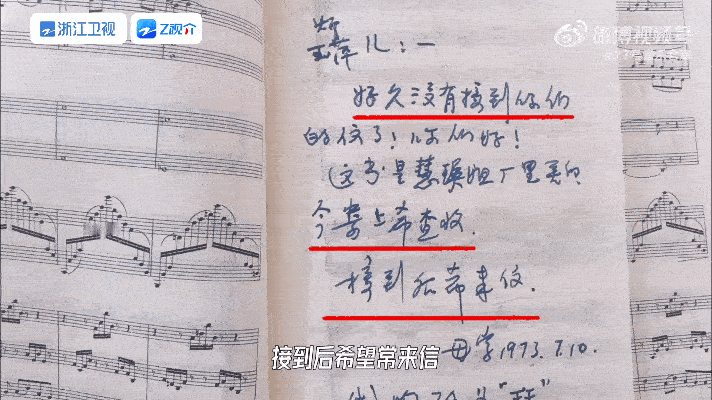 浙江卫视 Z视介
萍儿：一
好久没有接到你们
的信了！你们好！
这书是慧瑛姐厂里买的
今寄上希查收.
接到后希来信.
接到后希望常来信
母字1973.7.10.